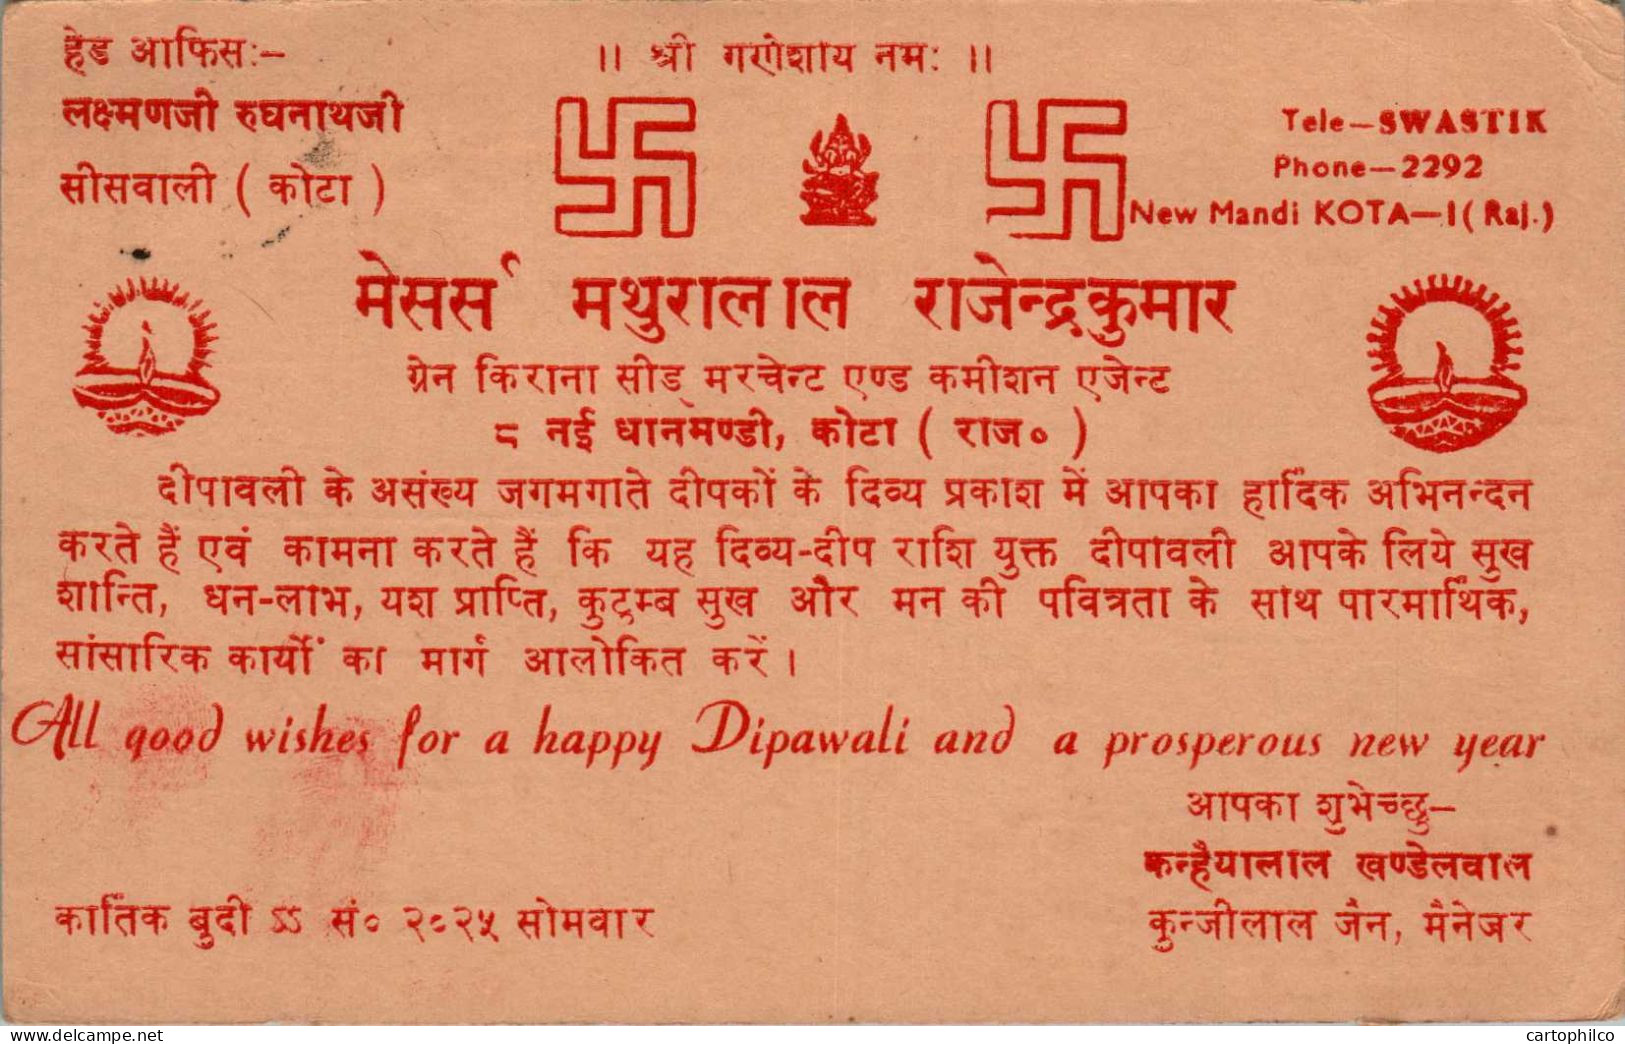 हेड आफिस:-
लक्ष्मणजी रुघनाथजी
सीसवाली ( कोटा )
।। श्री गणेशाय नमः ।।
Tele—SWASTIK
Phone—2292
New Mandi KOTA—1 ( Raj. )
मेसर्स मथुरालाल राजेन्द्रकुमार
ग्रेन किराना सीड् मरचेन्ट एण्ड कमीशन एजेन्ट
८ नई धानमण्डी, कोटा ( राज० )
दीपावली के असंख्य जगमगाते दीपकों के दिव्य प्रकाश में आपका हार्दिक अभिनन्दन
करते हैं एवं कामना करते हैं कि यह दिव्य-दीप राशि युक्त दीपावली आपके लिये सुख
शान्ति, धन-लाभ, यश प्राप्ति, कुटुम्ब सुख और मन की पवित्रता के साथ पारमार्थिक,
सांसारिक कार्यों का मार्ग आलोकित करें ।
All good wishes for a happy Dipawali and a prosperous new year
आपका शुभेच्छु—
कन्हैयालाल खण्डेलवाल
कुन्जीलाल जैन, मैनेजर
कार्तिक बुदी ऽऽ सं० २०२५ सोमवार
cartophilco